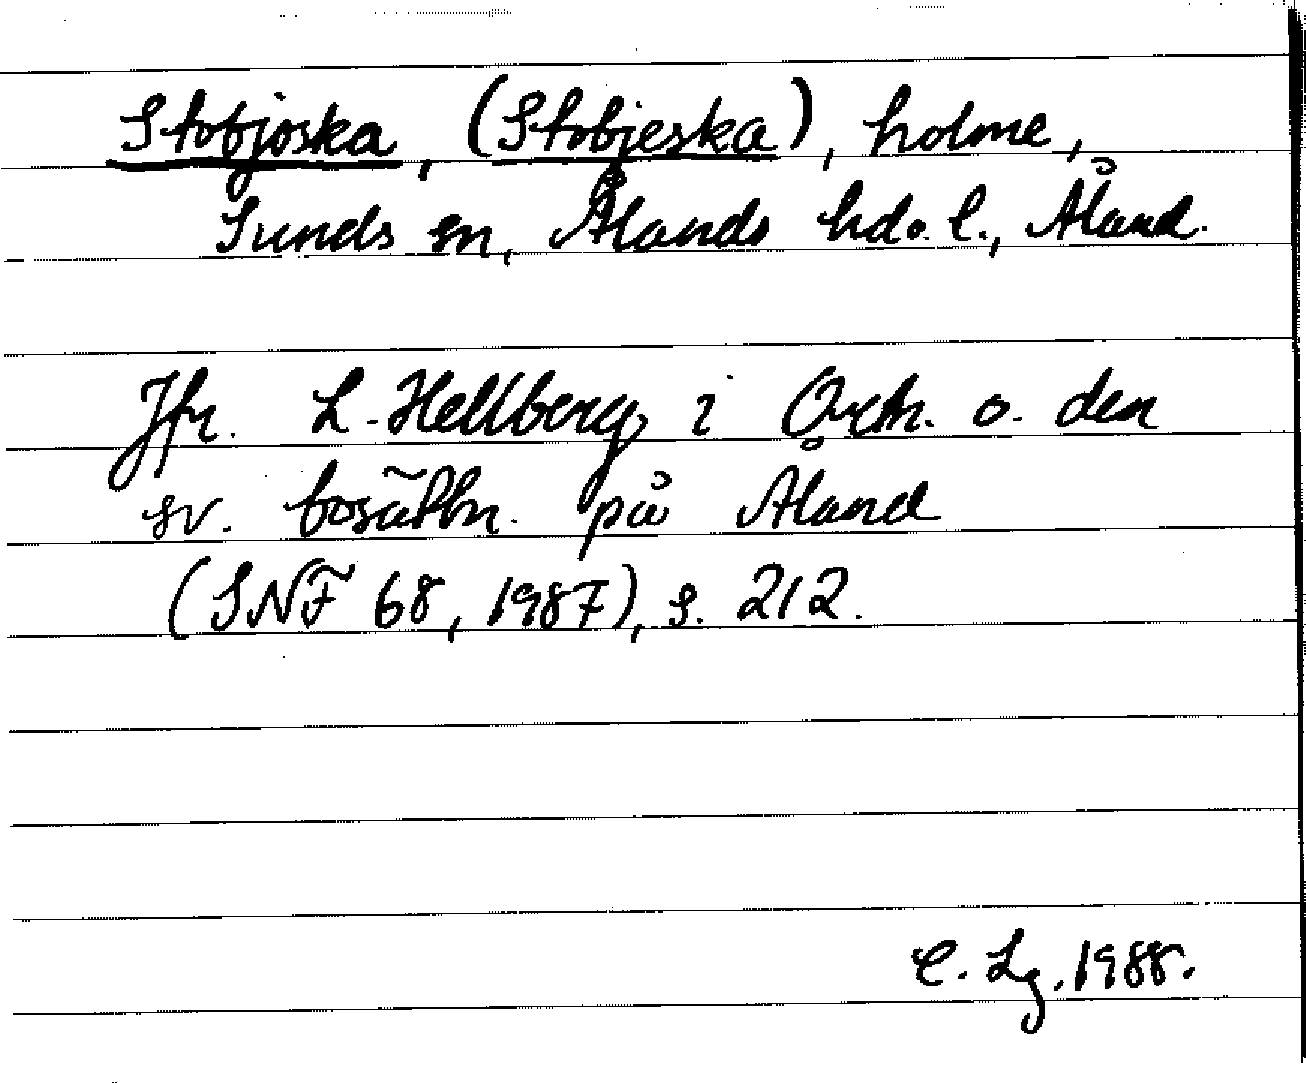 Stobjoska, (Stobjeska), holme,
Sunds sn, Ålands hd o. l., Åland.
Jfr. L. Hellberg i Ortn. o. den
sv. bosättn. på Åland
(SNF 68, 1987), s. 212.
C. Lg. 1988.